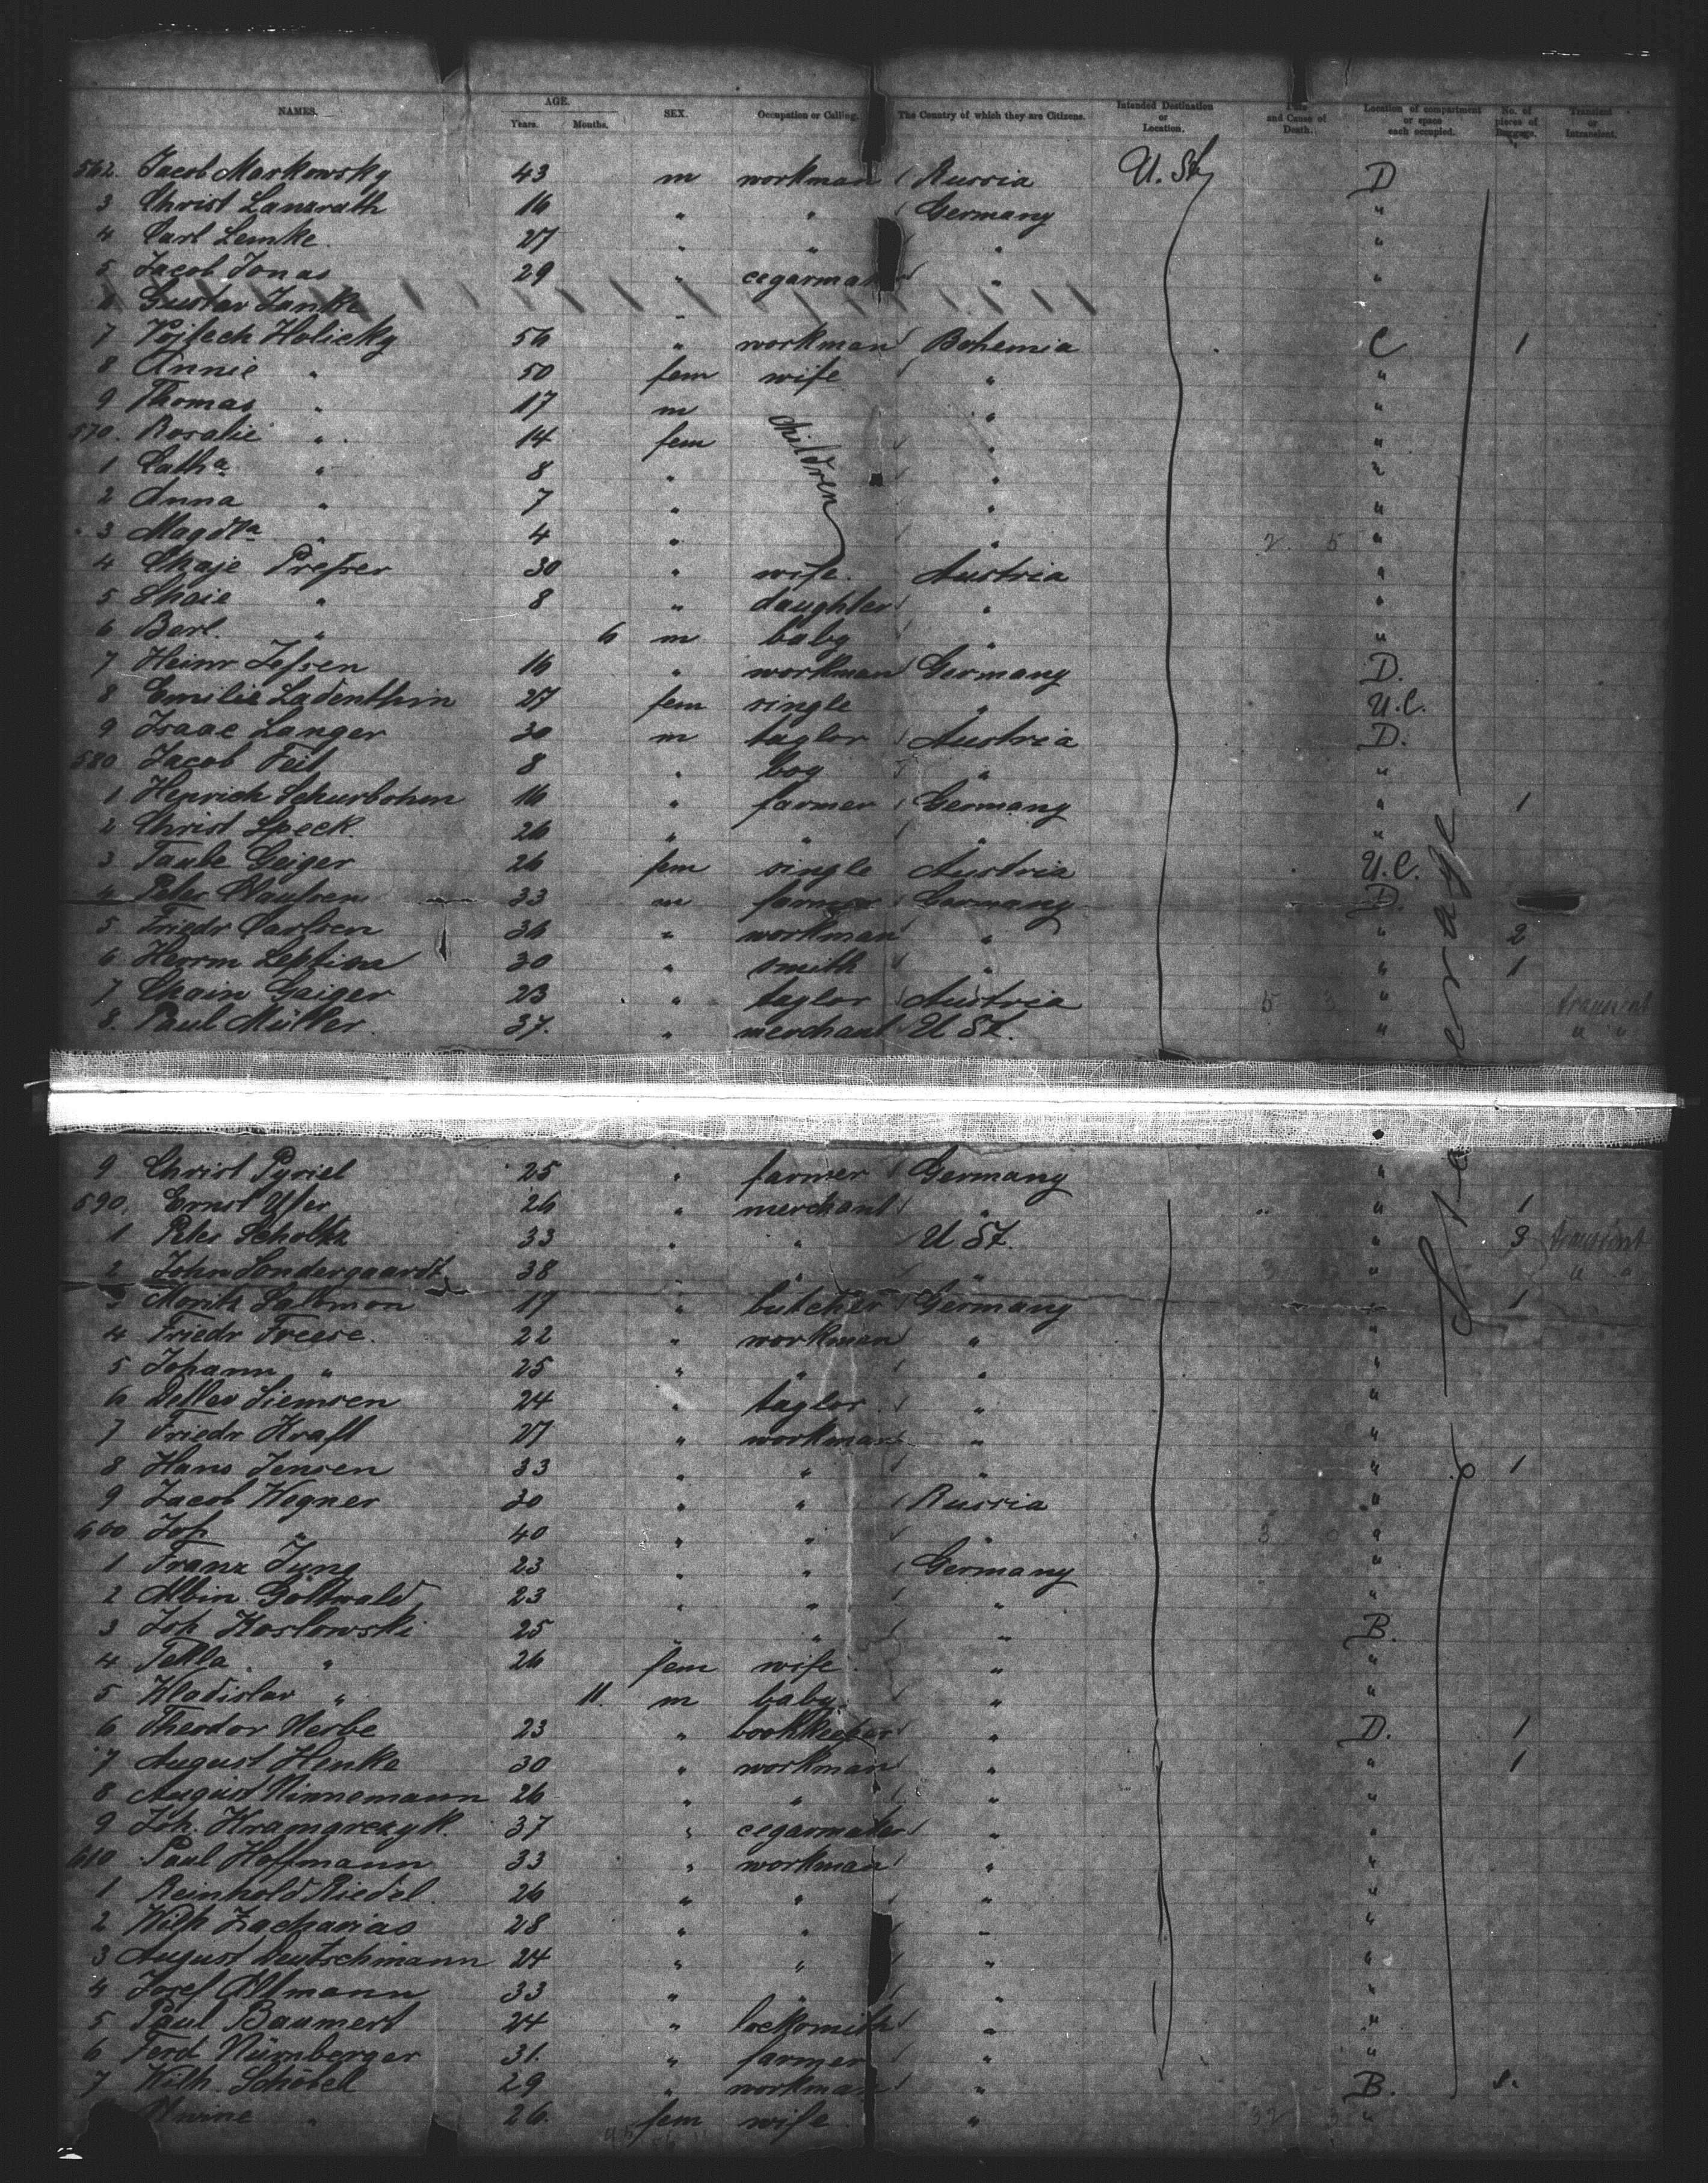 NAMES. AGE. Years. Months. SEX. Occupation or Calling. The Country of which they are Citizens. Intended Destination or Location. and Cause of Death. Location of compartment or space each occupied. No. of pieces of Baggage. Transient or Intransient.
562. Jacob Markowsky 43 m workman Russia U. St. D
3 Christ Lanzrath 16 " " Germany "
4 Carl Lemke 27 " " " "
5 Jacob Jonas 29 " cegarmak " "
6 Gustav Janke "
7 Vojtech Holicky 56 " workman Bohemia C 1
8 Annie " 50 fem wife " "
9 Thomas " 17 m children " "
570. Rosalie " 14 fem " "
1 Catha " 8 " " "
2 Anna " 7 " " "
3 Magdta " 4 " " 2 5 "
4 Chaje Presser 30 " wife. Austria "
5 " 8 " daughter " "
6 Berl. " 6 m baby " "
7 Heinr Jessen 16 " workman Germany D.
8 Emilie Ladenthin 27 fem single " U.C.
9 Isaac Langer 30 m taylor Austria D.
580 Jacob Feit 8 " boy " "
1 Henrich Schurbohm 16 " farmer Germany " 1
2 Christ Speck. 26 " " " "
3 Taube Geiger 26 fem single Austria U.C.
4 Peter Claussen 33 m farmer Germany D.
5 Friedr Carlsen 36 " workman " " 2
6 Herrm 30 " smith " " 1
7 Chain Geiger 23 " taylor Austria 5 3 " transient
8. Paul Müller 37. " merchant U St. " " "
9 Christ Pyriel 25 " farmer Germany "
590. Ernst Ufer 26 " merchant " " 1
1 Peter Scholtz 33 " " U St. " 3 transient
2 John Sondergaardt 38 " " " 3 " " "
3 Moritz Salomon 19 " butcher Germany " 1
4 Friedr Freese. 22 " workman " "
5 Johann " 25 " " " "
6 Detlev Siemsen 24 " taylor " "
7 Friedr Kraft 27 " workman " "
8 Hans Jensen 33 " " " " 1
9 Jacob Wegner 30 " " Russia "
600 Joh " 40 " " " 3 0 "
1 Franz Jung 23 " " Germany "
2 Albin Gottwald 23 " " " "
3 Joh Koslowski 25 " " " B.
4 Tekla " 26 fem wife " "
5 Wladislav " 11. m baby. " "
6 Theodor Nerbe 23 " bookkeeper " D. 1
7 August Henke 30 " workman " " 1
8 August Ninnemann 26 " " " "
9 Joh. Kramarczyk. 37 " cegarmaker " "
610 Paul Hoffmann 33 " workman " "
1 Reinhold Riedel. 26 " " " "
2 Wilh Zacharias 28 " " " "
3 August Deutschmann 24 " " " "
4 Josef Ollmann 33 " " " "
5 Paul Baumert 24 " locksmith " "
6 Ferd Nürnberger 31. " farmer " "
7 Wilh. Schöbel 29 " workman " B.
" 26. fem wife " 32 3 "